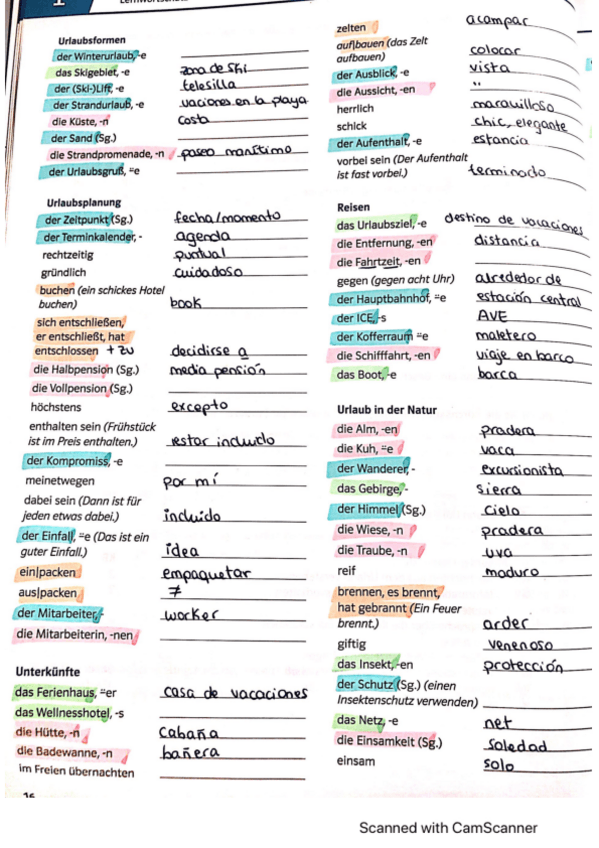 1
Urlaubsformen
der Winterurlaub, -e
das Skigebiet, -e zona de Ski
der (Ski-)Lift, -e telesilla
der Strandurlaub, -e vaciones en la playa
die Küste, -n costa
der Sand (Sg.)
die Strandpromenade, -n paseo marítimo
der Urlaubsgruß, ⸚e
Urlaubsplanung
der Zeitpunkt (Sg.) fecha/momento
der Terminkalender, - agenda
rechtzeitig puntual
gründlich cuidadosa
buchen (ein schickes Hotel
buchen) book
sich entschließen,
er entschließt, hat
entschlossen + zu decidirse a
die Halbpension (Sg.) media pensión
die Vollpension (Sg.)
höchstens excepto
enthalten sein (Frühstück
ist im Preis enthalten.) estar incluido
der Kompromiss, -e
meinetwegen por mí
dabei sein (Dann ist für
jeden etwas dabei.) incluido
der Einfall, ⸚e (Das ist ein
guter Einfall.) idea
ein|packen empaquetar
aus|packen ≠
der Mitarbeiter, - worker
die Mitarbeiterin, -nen
Unterkünfte
das Ferienhaus, ⸚er casa de vacaciones
das Wellnesshotel, -s
die Hütte, -n cabaña
die Badewanne, -n bañera
im Freien übernachten
zelten acampar
auf|bauen (das Zelt
aufbauen) colocar
der Ausblick, -e vista
die Aussicht, -en "
herrlich maravilloso
schick chic, elegante
der Aufenthalt, -e estancia
vorbei sein (Der Aufenthalt
ist fast vorbei.) terminado
Reisen
das Urlaubsziel, -e destino de vacaciones
die Entfernung, -en distancia
die Fahrtzeit, -en
gegen (gegen acht Uhr) alrededor de
der Hauptbahnhof, ⸚e estación central
der ICE, -s AVE
der Kofferraum ⸚e maletero
die Schifffahrt, -en viaje en barco
das Boot, -e barca
Urlaub in der Natur
die Alm, -en pradera
die Kuh, ⸚e vaca
der Wanderer, - excursionista
das Gebirge, - sierra
der Himmel (Sg.) cielo
die Wiese, -n pradera
die Traube, -n uva
reif maduro
brennen, es brennt,
hat gebrannt (Ein Feuer
brennt.) arder
giftig venenoso
das Insekt, -en protección
der Schutz (Sg.) (einen
Insektenschutz verwenden)
das Netz, -e net
die Einsamkeit (Sg.) soledad
einsam solo
Scanned with CamScanner